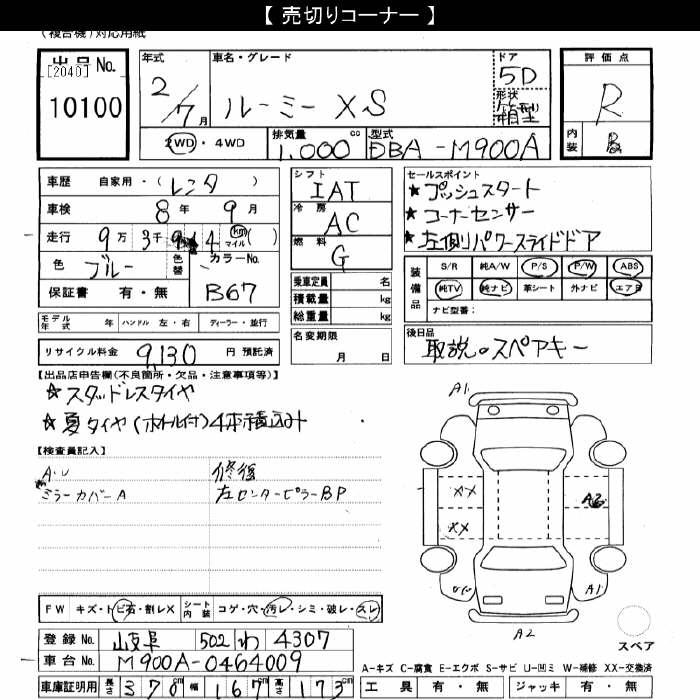 【 売切りコーナー 】
(複合機)対応用紙
出品 No.
[2040]
10100
年式
2/7月
車名・グレード
ルーミー XS
ドア
5D
形状
箱型
評価点
R
内装
B
2WD・4WD
排気量
1,000 cc
型式
DBA-M900A
車歴 自家用・(レンタ)
車検 8年 9月
走行 9万 3千 km マイル ( )
色 ブルー
色替
カラーNo.
B67
保証書 有・無
シフト
IAT
冷房
AC
燃料
G
乗車定員 名
積載量 kg
総重量 kg
セールスポイント
★プッシュスタート
★コーナーセンサー
★左側パワースライドドア
装備品
S/R 純A/W P/S P/W ABS
純TV 純ナビ 革シート 外ナビ エアB
ナビ型番:
モデル年式 年 ハンドル 左・右 ディーラー・並行
リサイクル料金 9,130 円 預託済
名変期限
月 日
後日品
取説。スペアキー
【出品店申告欄(不良箇所・欠品・注意事項等)】
★スタッドレスタイヤ
★夏タイヤ(ホイル付)4本積込み
【検査員記入】
A.U
ミラーカバーA
修復
左センターピラーBP
A1
XX
XX
A2
A1
A2
スペア
FW キズ・トビ石・割レX
シート内装 コゲ・穴・汚レ・シミ・破レ・スレ
登録 No. 岐阜 502 わ 4307
車台 No. M900A-0464009
車庫証明用 長さ 370cm 幅 167cm 高さ 173cm
A-キズ C-腐食 E-エクボ S-サビ U-凹ミ W-補修 XX-交換済
工具 有・無 ジャッキ 有・無